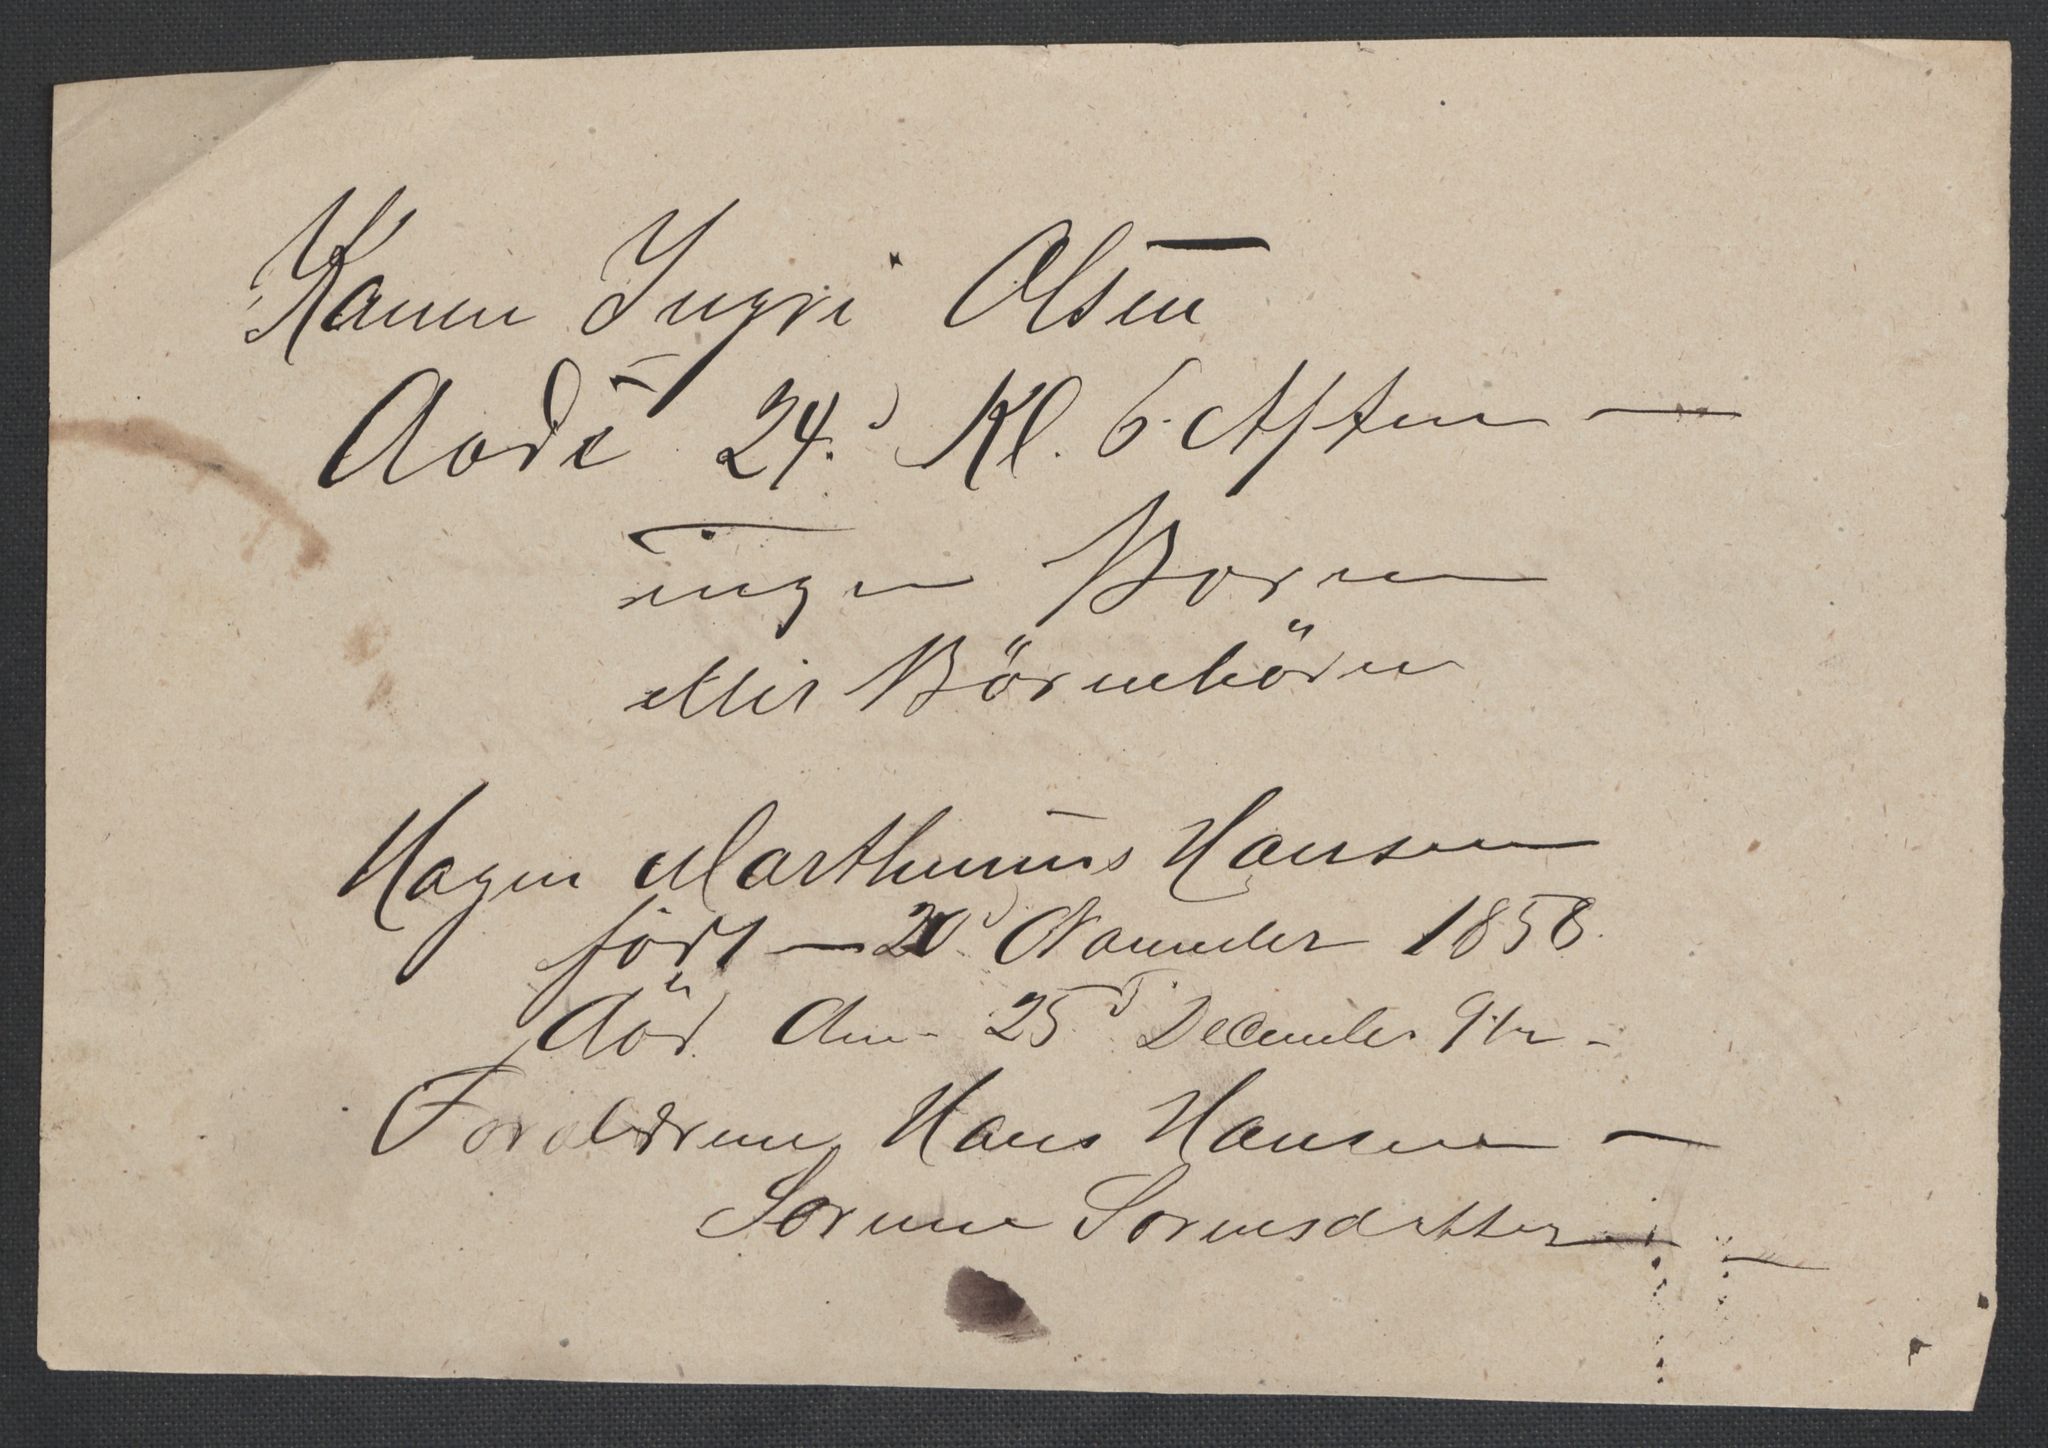 Karen Ingri Olsen
döde 24. Kl. 6 Aften
ingen Børn
eller Börnebörn
Hagen Marthinus Hansen
födt 20 November 1858.
död den 25 December 94
Foraldrene Hans Hansen
Sorine Sorensdatter